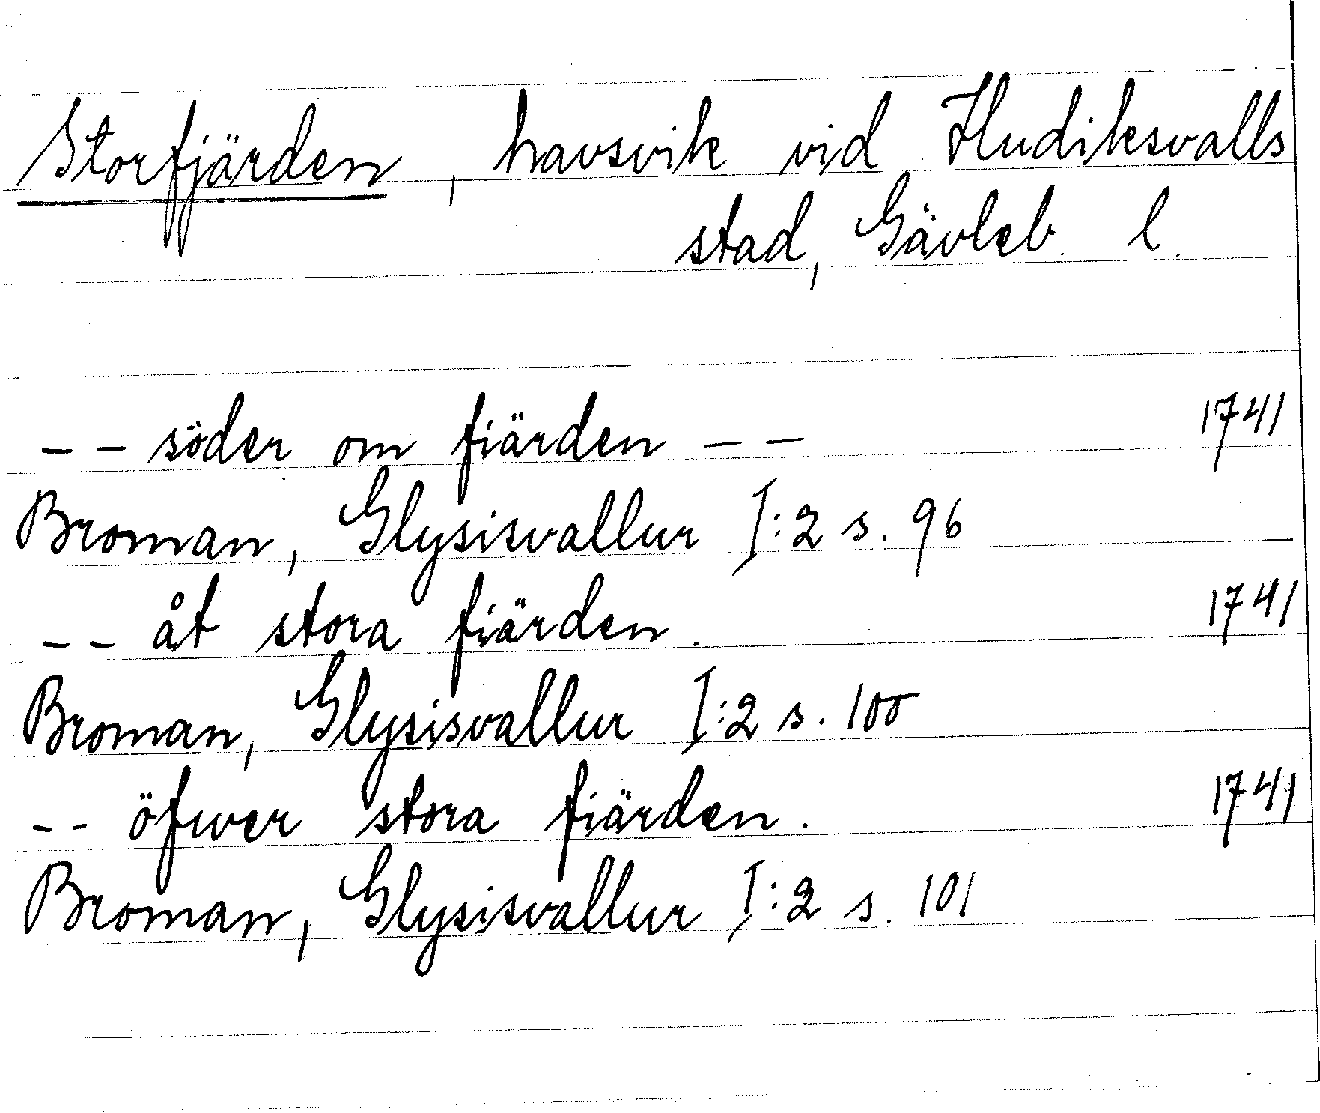 Storfjärden, havsvik vid Hudiksvalls
stad, Gävleb. l.
-- söder om fiärden -- 1741
Broman, Glysisvallur I:2 s. 96
-- åt stora fiärden. 1741
Broman, Glysisvallur I:2 s. 100
-- öfwer stora fiärden. 1741
Broman, Glysisvallur I:2 s. 101